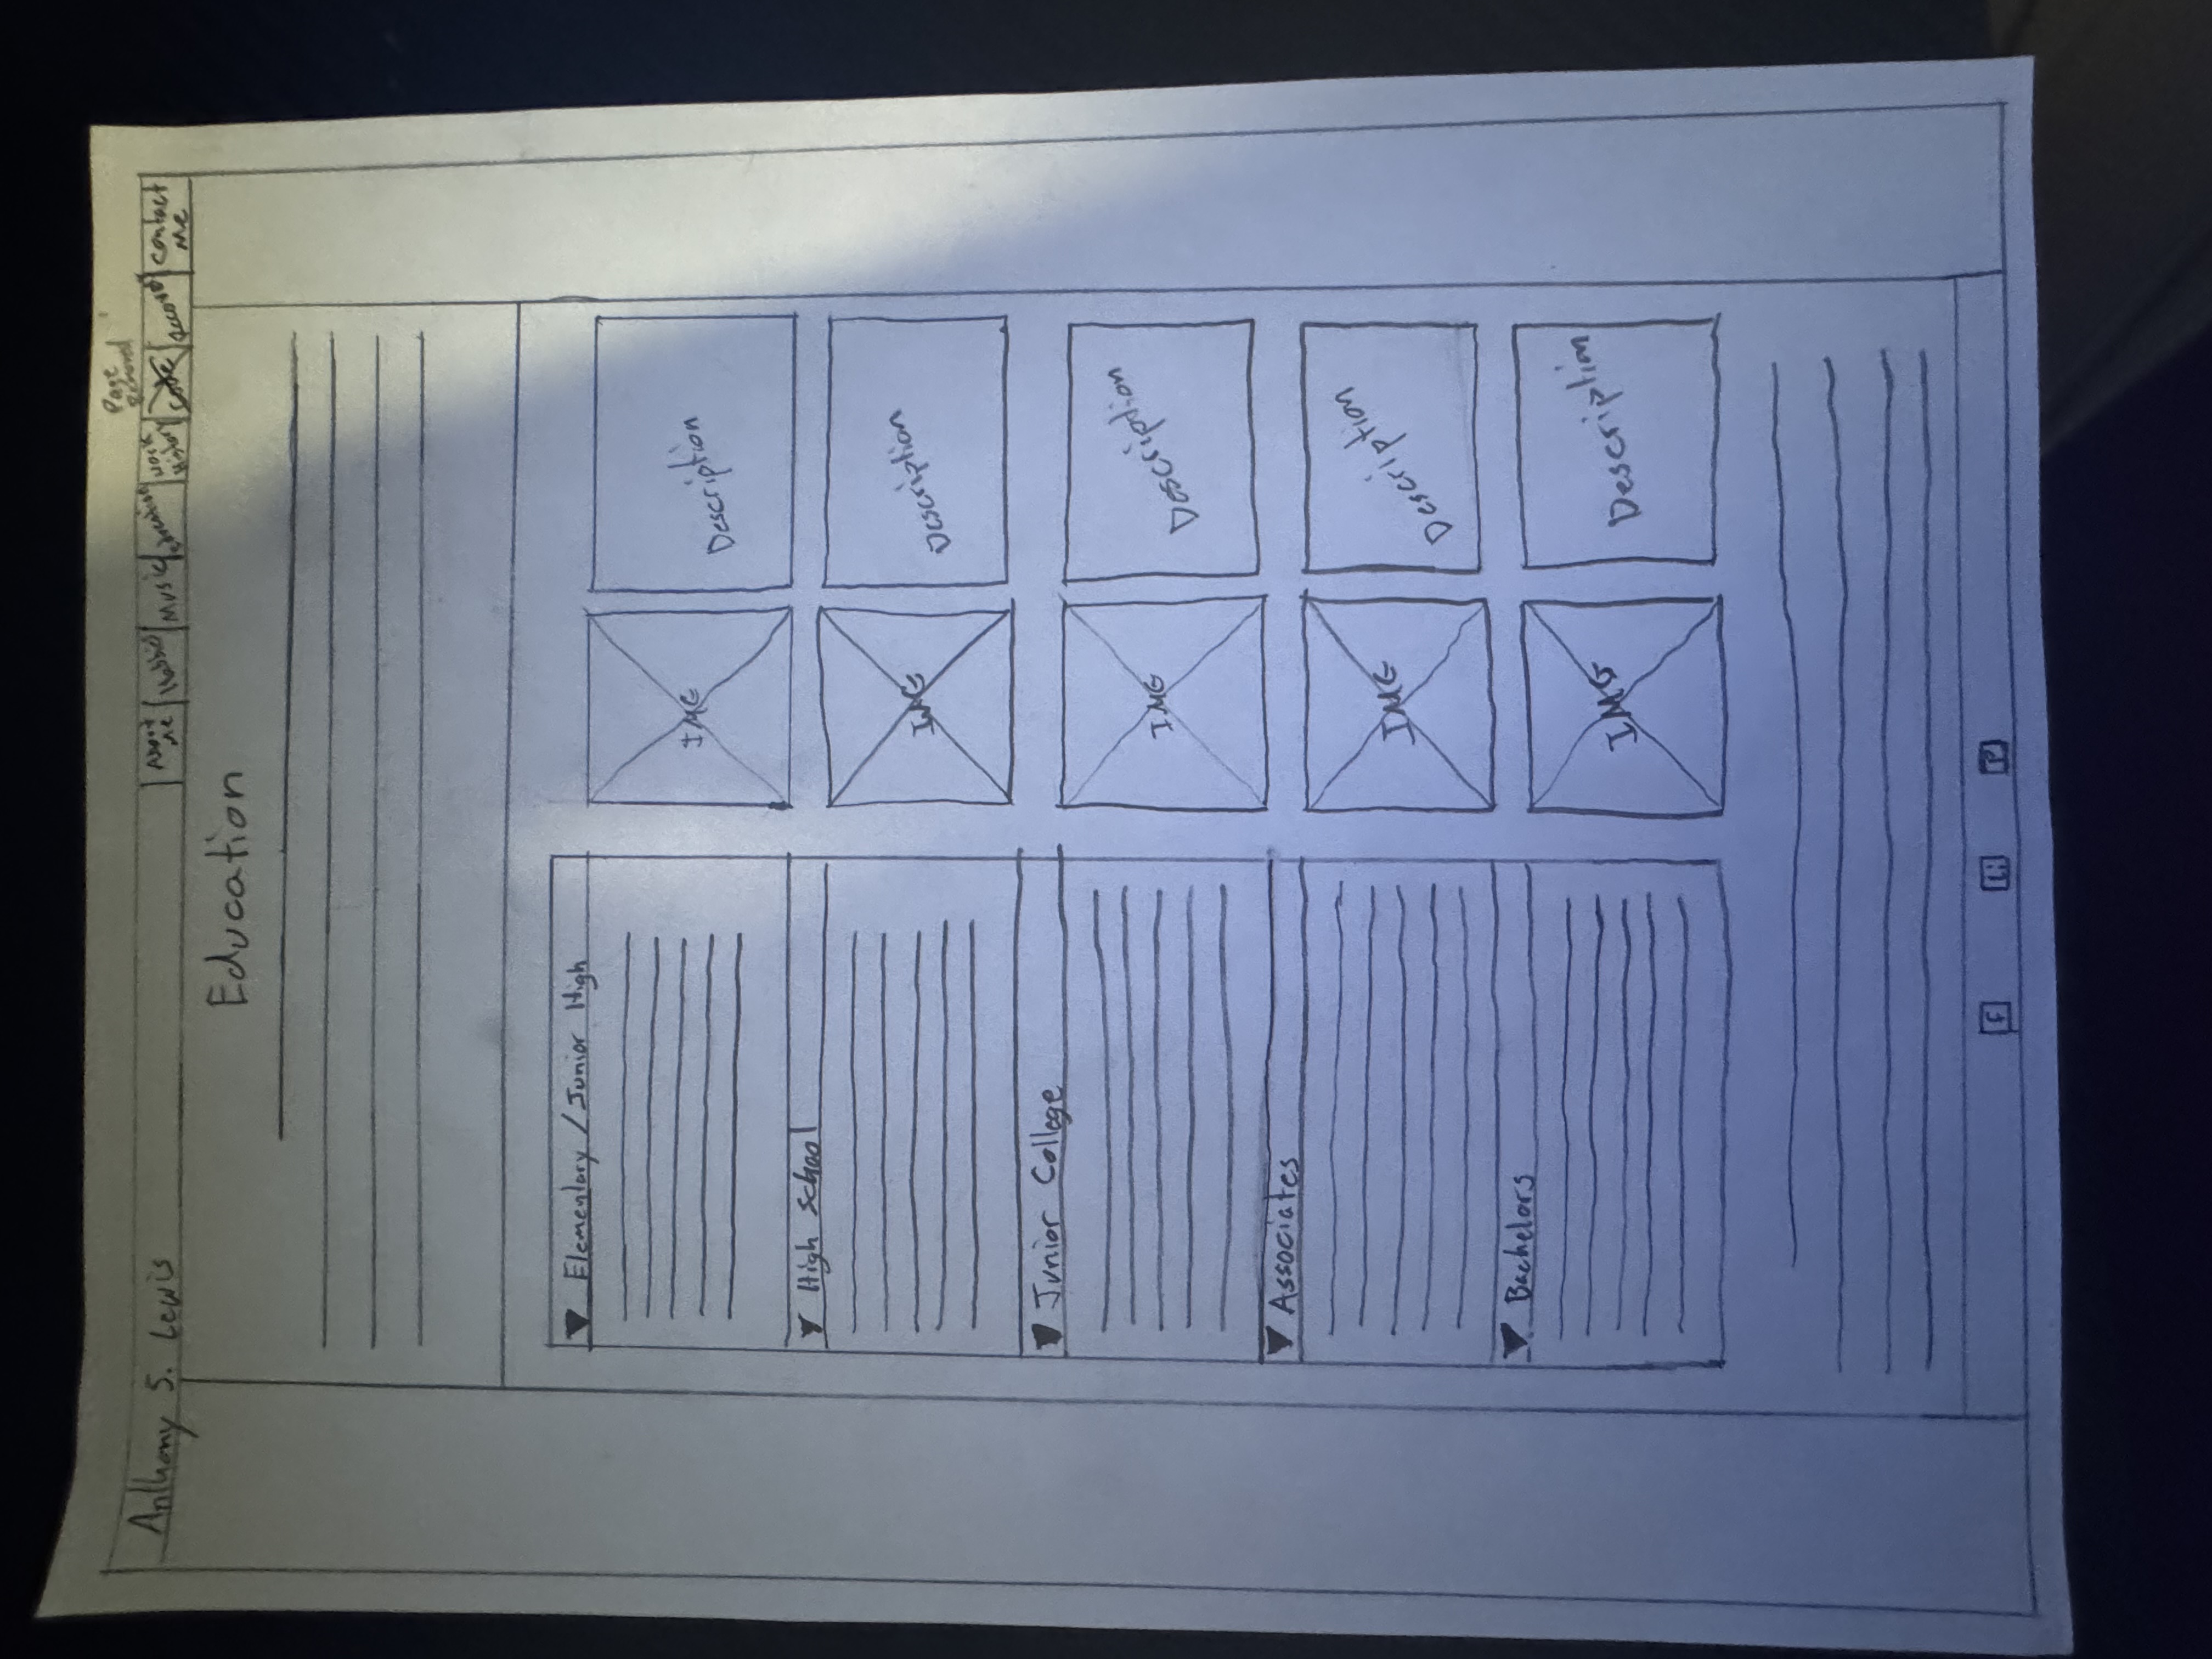 Page
Removed
Anthony S. Lewis
About Me
Hobbies
Music
Education
Work History
Code
Contact Me
Education
Elementary / Junior High
IMG
Description
High School
IMG
Description
Junior College
IMG
Description
Associates
IMG
Description
Bachelors
IMG
Description
f
Li
P